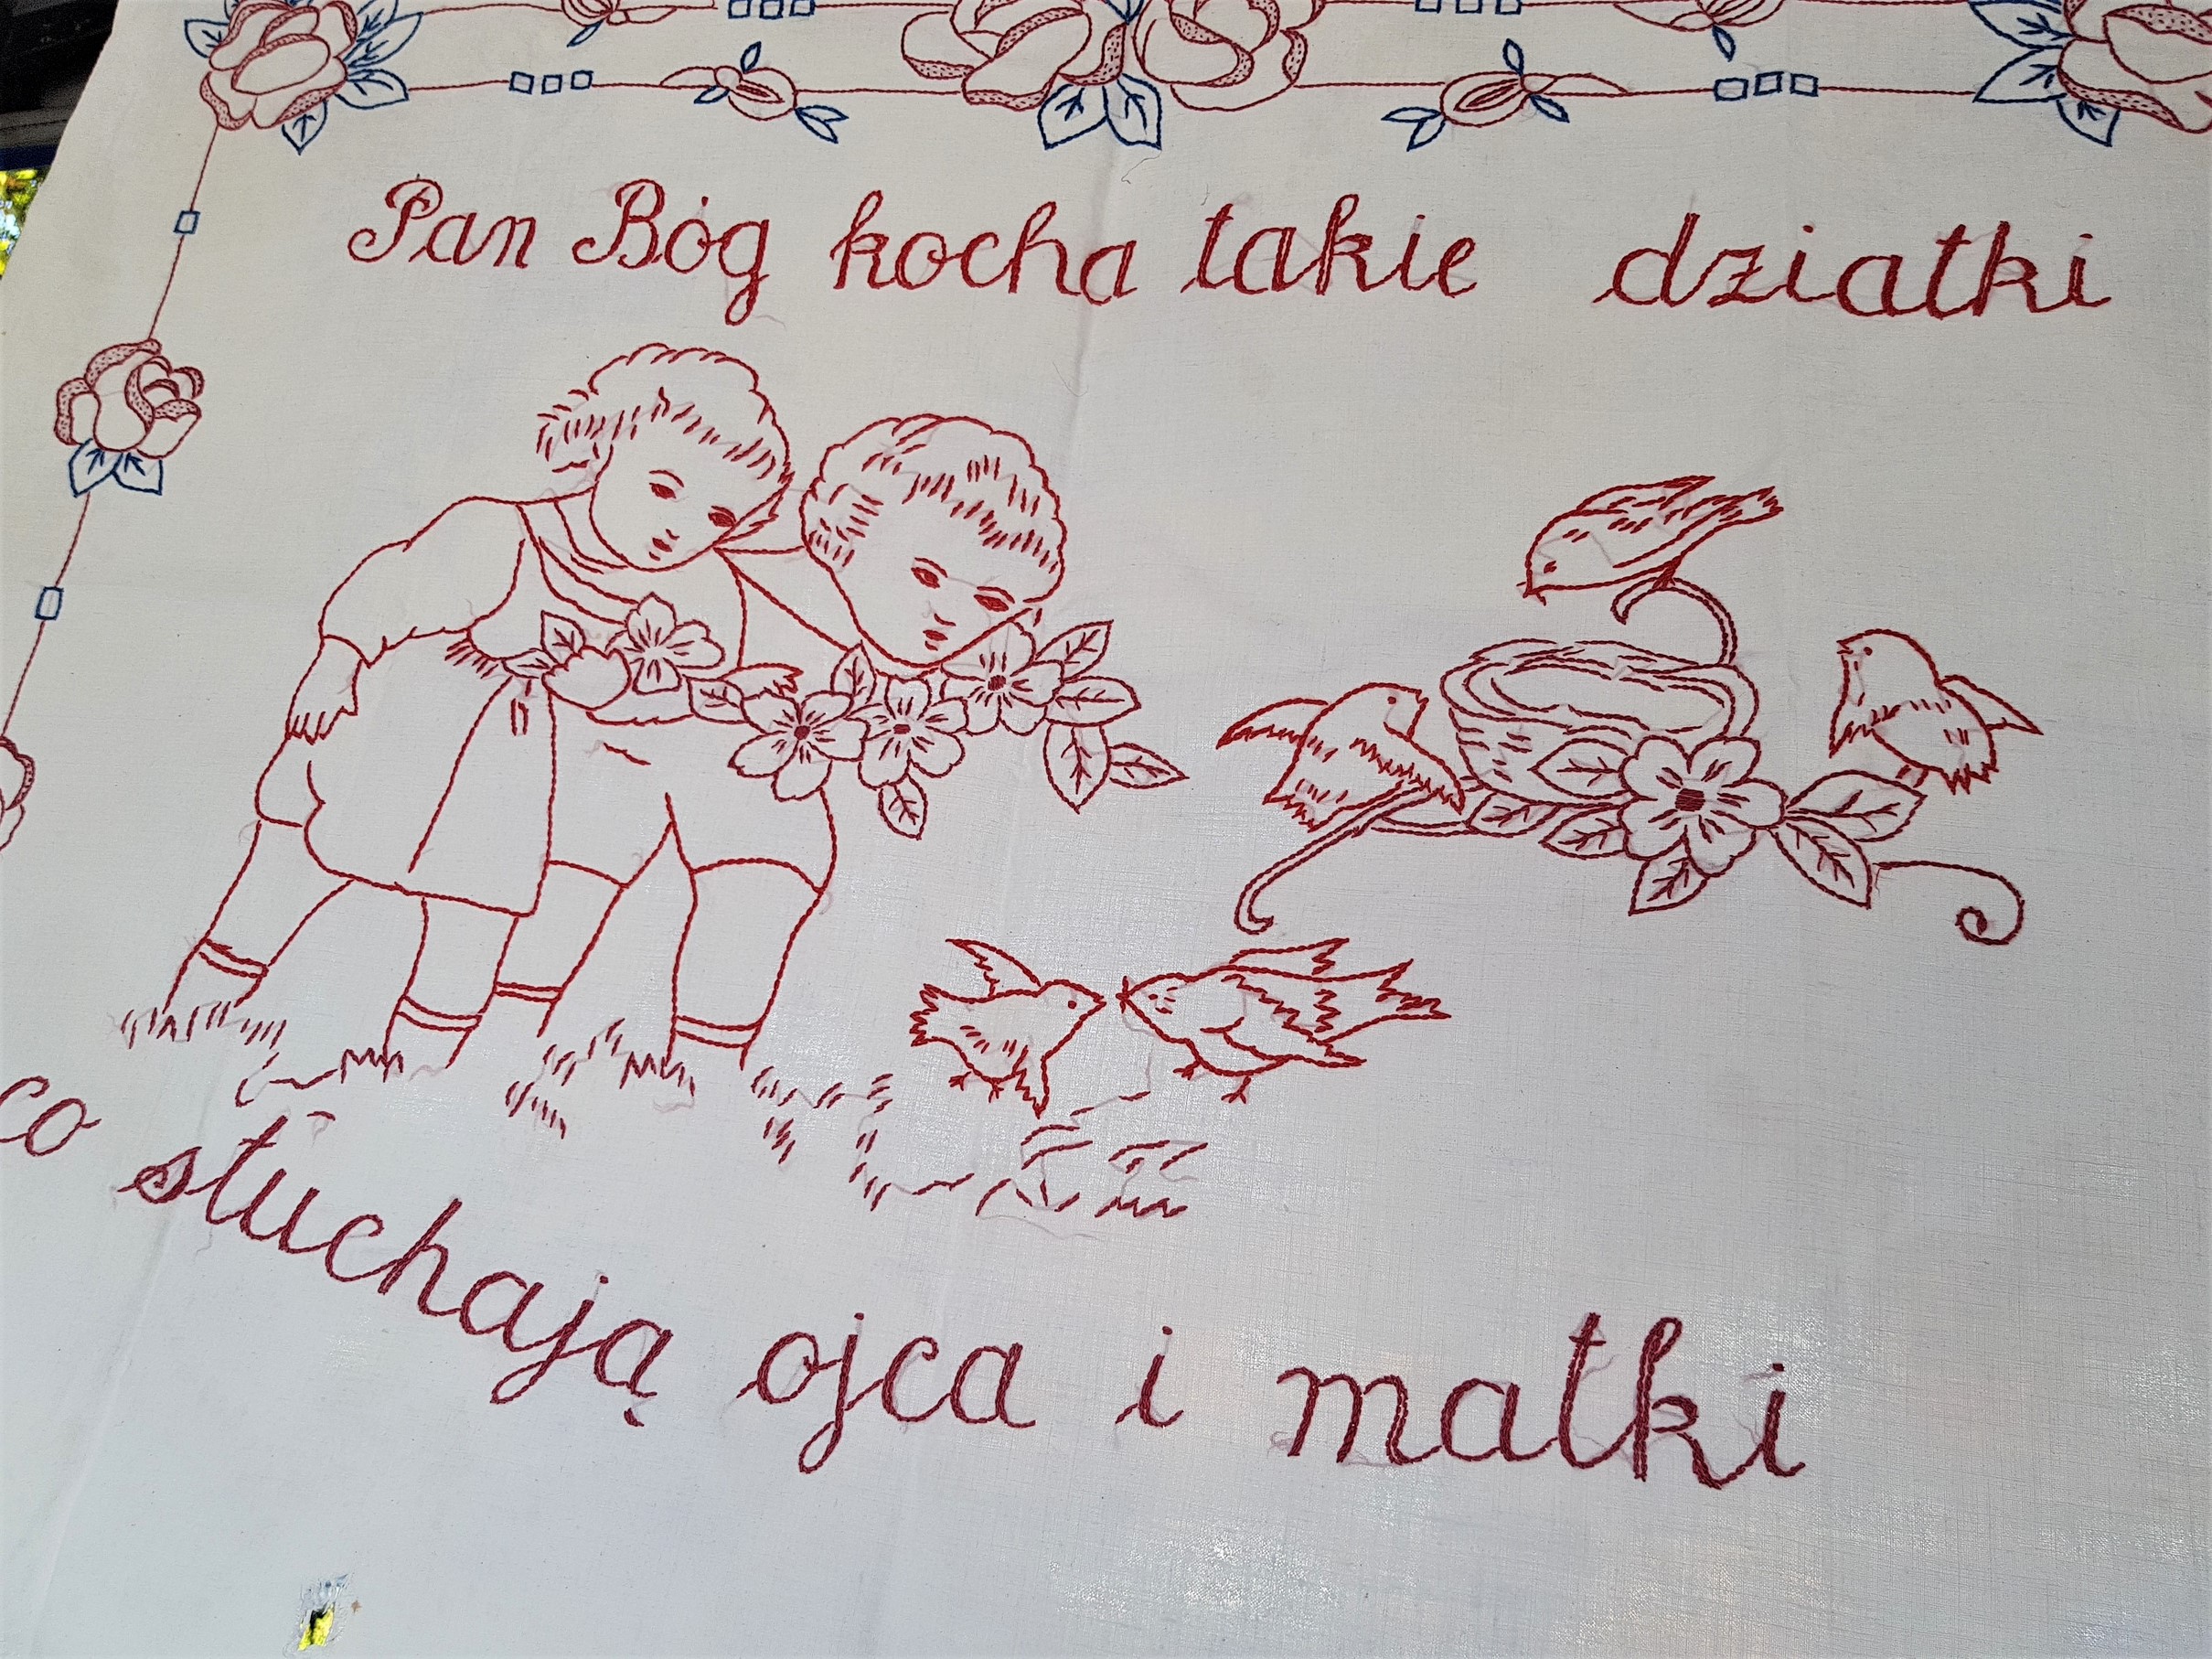 Pan Bóg kocha takie dziatki
co słuchają ojca i matki